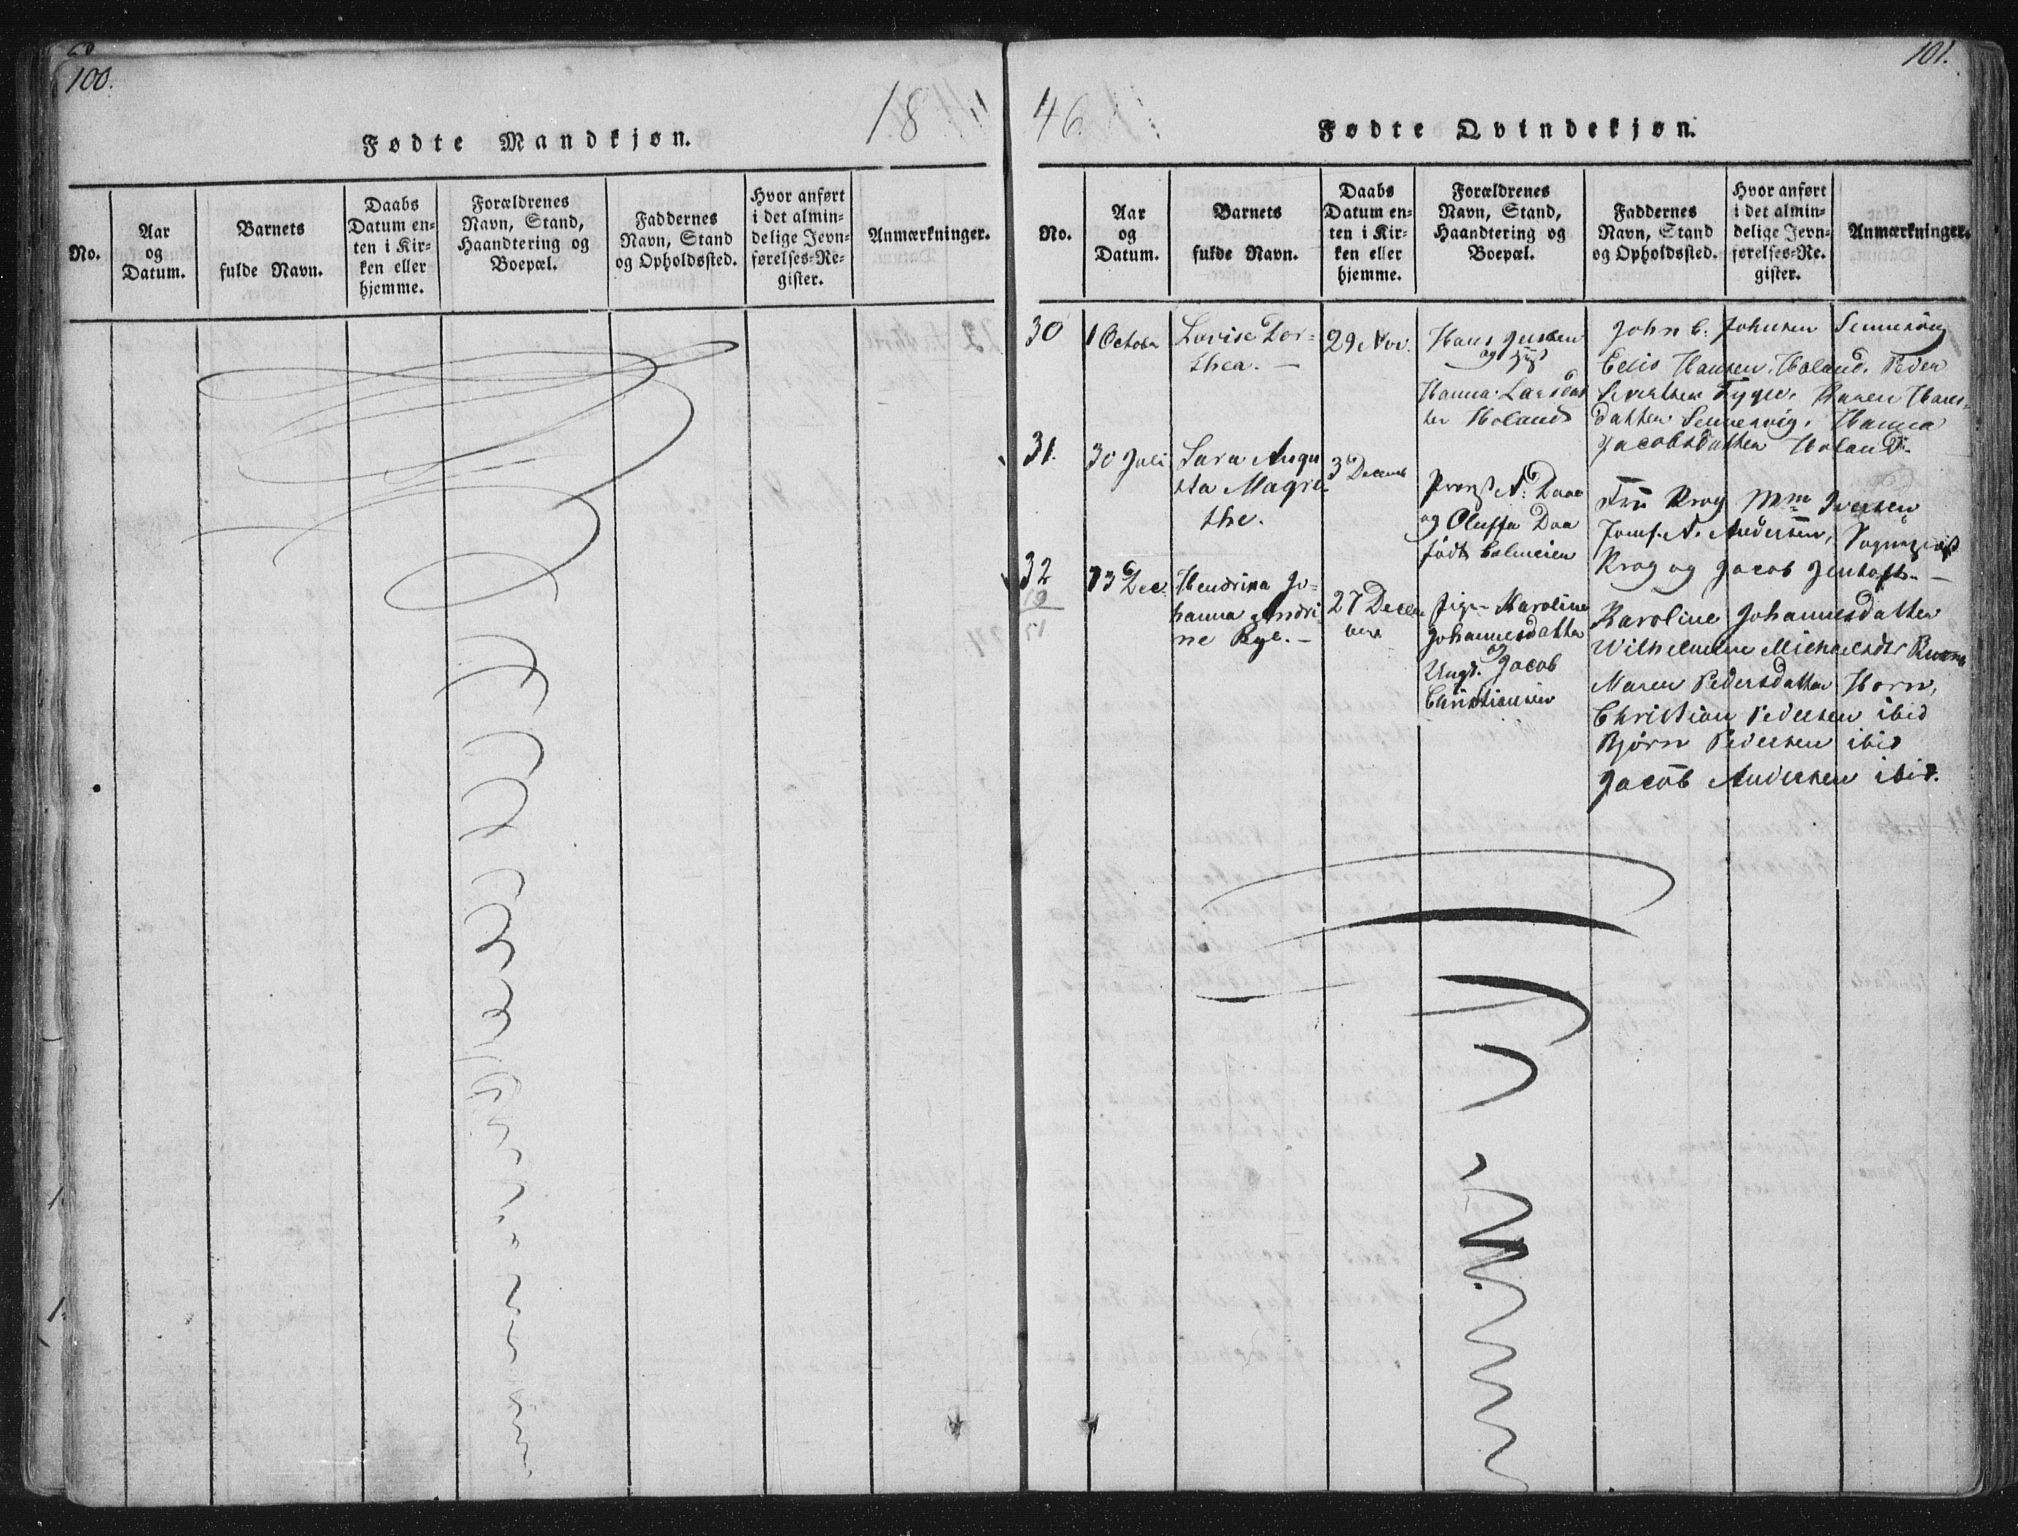 100.
1846.
Fødte Mandkjøn.
No.
Aar
og
Datum.
Barnets
fulde Navn.
Daabs
Datum en-
ten i Kir-
ken eller
hjemme.
Forældrenes
Navn, Stand,
Haandtering og
Boepæl.
Faddernes
Navn, Stand
og Opholdssted.
Hvor anført
i det almin-
delige Jevn-
førelses-Re-
gister.
Anmærkninger.
101.
Fødte Qvindekjøn.
No.
Aar
og
Datum.
Barnets
fulde Navn.
Daabs
Datum en-
ten i Kir-
ken eller
hjemme.
Forældrenes
Navn, Stand,
Haandtering og
Boepæl.
Faddernes
Navn, Stand
og Opholdssted.
Hvor anført
i det almin-
delige Jevn-
førelses-Re-
gister.
Anmærkninger.
30
1 October
Lovise Dor-
thea.
29 Nov.
Hans Jensen
og
Hanna Larsdat
ter Holand
John C. Johnsen
Hansen, Holand, Peder
Sivertsen Karen Hans-
datter Hanna
Jacobsdatter Holand.
31.
30 Juli
Sara Augu
sta Magre-
the.
3 Decemb
Provst N. Daae
og Oluffa Daa
født
Fru Krog Mme Iversen
Jomf. N. Andersen,
Krog og Jacob Jentoft.
32
19
51
Dec.
Hendrika Jo-
hanna Andri-
ne
27 Decem
ber
Pige Karoline
Johannesdatter
og
Ungk. Jacob
Christiansen
Karoline Johannesdatter
Wilhelmine Michaelsdtr
Maren Pedersdatter Horn,
Christian Pedersen ibid
Bjørn Pedersen ibid
Jacob Andersen ibid.